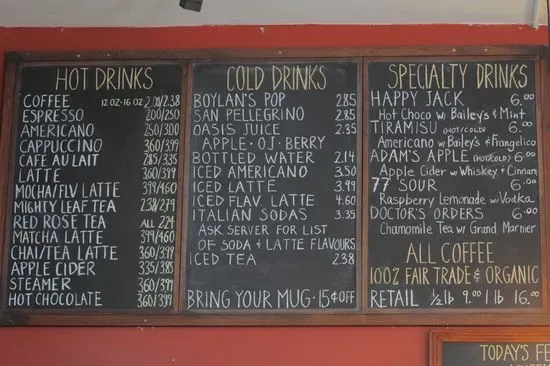 HOT DRINKS
12 OZ - 16 OZ
COFFEE 2.00/2.38
ESPRESSO 200/250
AMERICANO 250/300
CAPPUCCINO 360/399
CAFE AU LAIT 285/335
LATTE 360/399
MOCHA/FLV LATTE 399/460
MIGHTY LEAF TEA 2.38/279
RED ROSE TEA ALL 224
MATCHA LATTE 399/460
CHAI/TEA LATTE 360/399
APPLE CIDER 335/385
STEAMER 360/399
HOT CHOCOLATE 360/399
COLD DRINKS
BOYLAN'S POP 2.85
SAN PELLEGRINO 2.85
OASIS JUICE 2.35
APPLE · OJ · BERRY
BOTTLED WATER 2.14
ICED AMERICANO 3.50
ICED LATTE 3.99
ICED FLAV. LATTE 4.60
ITALIAN SODAS 3.35
ASK SERVER FOR LIST
OF SODA & LATTE FLAVOURS
ICED TEA 2.38
BRING YOUR MUG · 15¢ OFF
SPECIALTY DRINKS
HAPPY JACK 6.00
Hot Choco w/ Bailey's & Mint
TIRAMISU (HOT/COLD) 6.00
Americano w/ Bailey's & Frangelico
ADAM'S APPLE (HOT/COLD) 6.00
Apple Cider w/ Whiskey & Cinnam
77 SOUR 6.00
Raspberry Lemonade w/ Vodka
DOCTOR'S ORDERS 6.00
Chamomile Tea w/ Grand Marnier
ALL COFFEE
100% FAIR TRADE & ORGANIC
RETAIL 1/2 lb 9.00 1 lb 16.00
TODAY'S FE